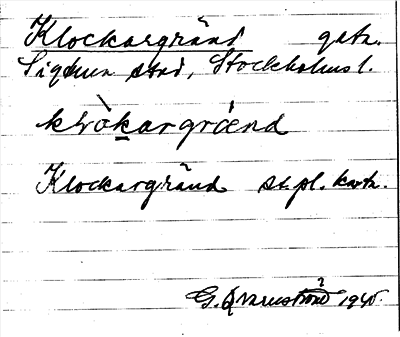 Klockargränd gatn.
Sigtuna stad, Stockholms l.
klòkargrænd
Klockargränd st.pl. karta.
G. 1940.